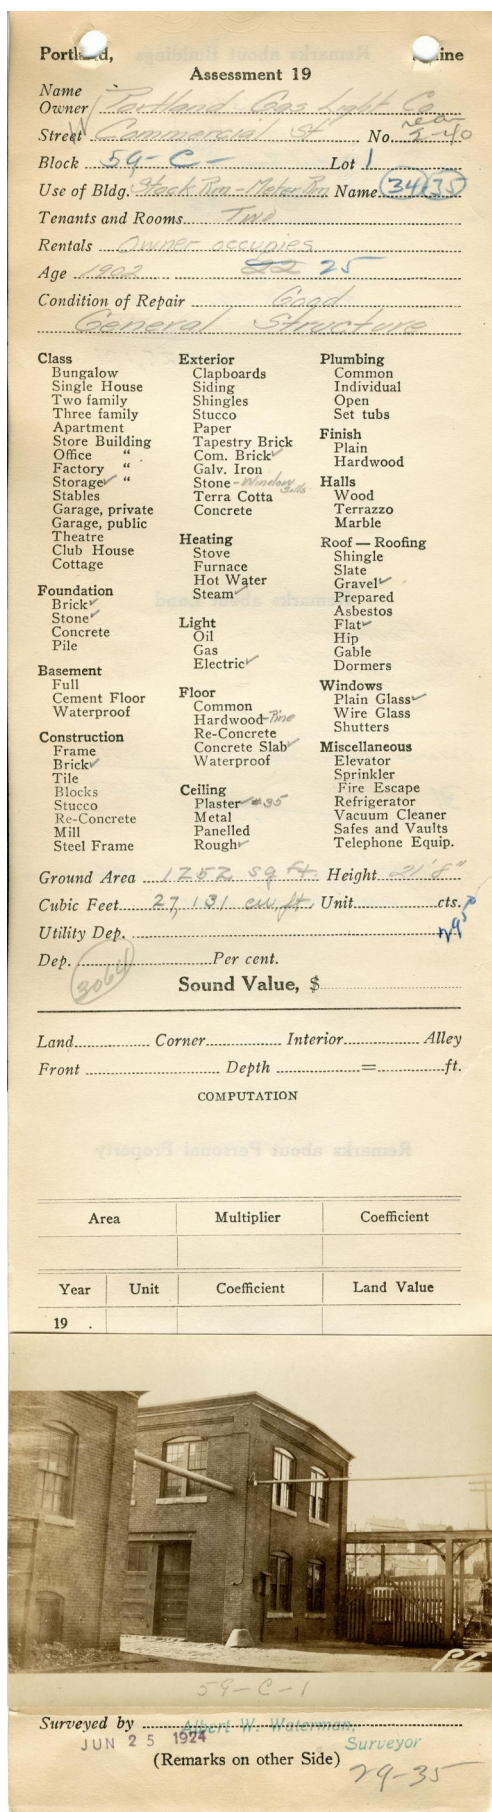 Portland, Maine
Assessment 19
Name
Owner Portland Gas Light Co
Street W Commercial St No. rear 2-40
Block 59-C- Lot 1
Use of Bldg. Stock Rm - Meter Rm Name 34 35
Tenants and Rooms Two
Rentals Owner occupies
Age 1902 22 25
Condition of Repair Good
General Structure
Class
Bungalow
Single House
Two family
Three family
Apartment
Store Building
Office "
Factory "
Storage ✓ "
Stables
Garage, private
Garage, public
Theatre
Club House
Cottage
Foundation
Brick ✓
Stone ✓
Concrete
Pile
Basement
Full
Cement Floor
Waterproof
Construction
Frame
Brick ✓
Tile
Blocks
Stucco
Re-Concrete
Mill
Steel Frame
Exterior
Clapboards
Siding
Shingles
Stucco
Paper
Tapestry Brick
Com. Brick ✓
Galv. Iron
Stone - Window Sills
Terra Cotta
Concrete
Heating
Stove
Furnace
Hot Water
Steam ✓
Light
Oil
Gas
Electric ✓
Floor
Common
Hardwood - Pine
Re-Concrete
Concrete Slab ✓
Waterproof
Ceiling
Plaster ✓ #35
Metal
Panelled
Rough ✓
Plumbing
Common
Individual
Open
Set tubs
Finish
Plain
Hardwood
Halls
Wood
Terrazzo
Marble
Roof — Roofing
Shingle
Slate
Gravel ✓
Prepared
Asbestos
Flat ✓
Hip
Gable
Dormers
Windows
Plain Glass ✓
Wire Glass
Shutters
Miscellaneous
Elevator
Sprinkler
Fire Escape
Refrigerator
Vacuum Cleaner
Safes and Vaults
Telephone Equip.
Ground Area 1252 sq ft. Height 21'8"
Cubic Feet 27,131 cu. ft. Unit cts.
Utility Dep. 2950
Dep. Per cent.
3064
Sound Value, $
Land Corner Interior Alley
Front Depth = ft.
COMPUTATION
Area Multiplier Coefficient
Year Unit Coefficient Land Value
19 .
P6
59-C-1
Surveyed by Albert W. Waterman,
JUN 25 1924 Surveyor
(Remarks on other Side)
29-35